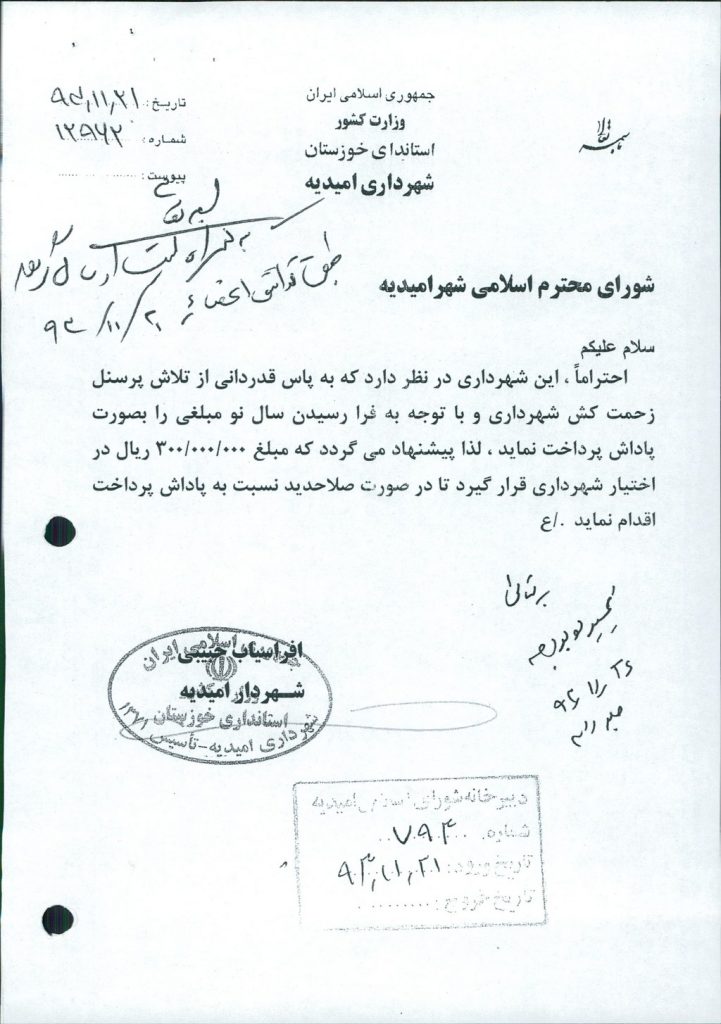 باسمه تعالی
جمهوری اسلامی ایران
وزارت کشور
استاندای خوزستان
شهرداری امیدیه
تاریخ: ۹۳,۱۱,۲۱
شماره: ۱۲۹۶۲
پیوست:
۹۳/۱۱/۲۱
شورای محترم اسلامی شهرامیدیه
سلام علیکم
احتراماً ، این شهرداری در نظر دارد که به پاس قدردانی از تلاش پرسنل
زحمت کش شهرداری و با توجه به فرا رسیدن سال نو مبلغی را بصورت
پاداش پرداخت نماید ، لذا پیشنهاد می گردد که مبلغ ۳۰۰/۰۰۰/۰۰۰ ریال در
اختیار شهرداری قرار گیرد تا در صورت صلاحدید نسبت به پاداش پرداخت
اقدام نماید ./ع
افراسیاب حبیبی
شهردار امیدیه
جمهوری اسلامی ایران
استانداری خوزستان
شهرداری امیدیه-تأسیس ۱۳۷۱
دبیرخانه شورای اسلامی امیدیه
شماره: ۷۹۴
تاریخ ورود: ۹۳,۱۱,۲۱
تاریخ خروج: